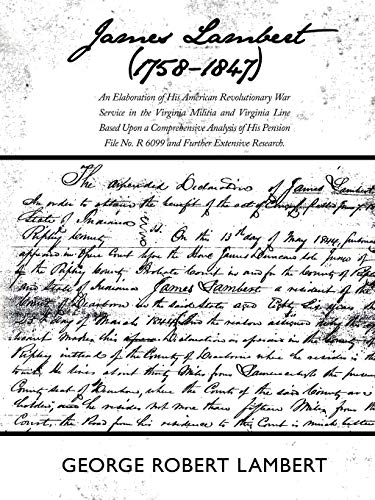 James Lambert
(1758-1847)
An Elaboration of His American Revolutionary War
Service in the Virginia Militia and Virginia Line
Based Upon a Comprehensive Analysis of His Pension
File No. R 6099 and Further Extensive Research.
The amended Declaration of James Lambert
In order to obtain the benefit of the act of
State of Indiana
Ripley County } SS. On the 13th day of May 1844,
appeared in open Court before the Hon. James Duncan sole Judge of
in the Ripley County Probate Court in and for the County of Ripley
and State of Indiana James Lambert a resident of the
County of Dearborn in the said State aged Eighty Six years
day of March 1844, and the reason assigned
Declaration or appears in the County of
Ripley instead of the County of Dearborn where he resides is
He lives about thirty Miles from Lawrenceburgh the present
County seat of Dearborn, where the Courts of the said County are
holden, and he resides not more than fifteen Miles from the
Court, the Road from his residence to this Court is much better
GEORGE ROBERT LAMBERT